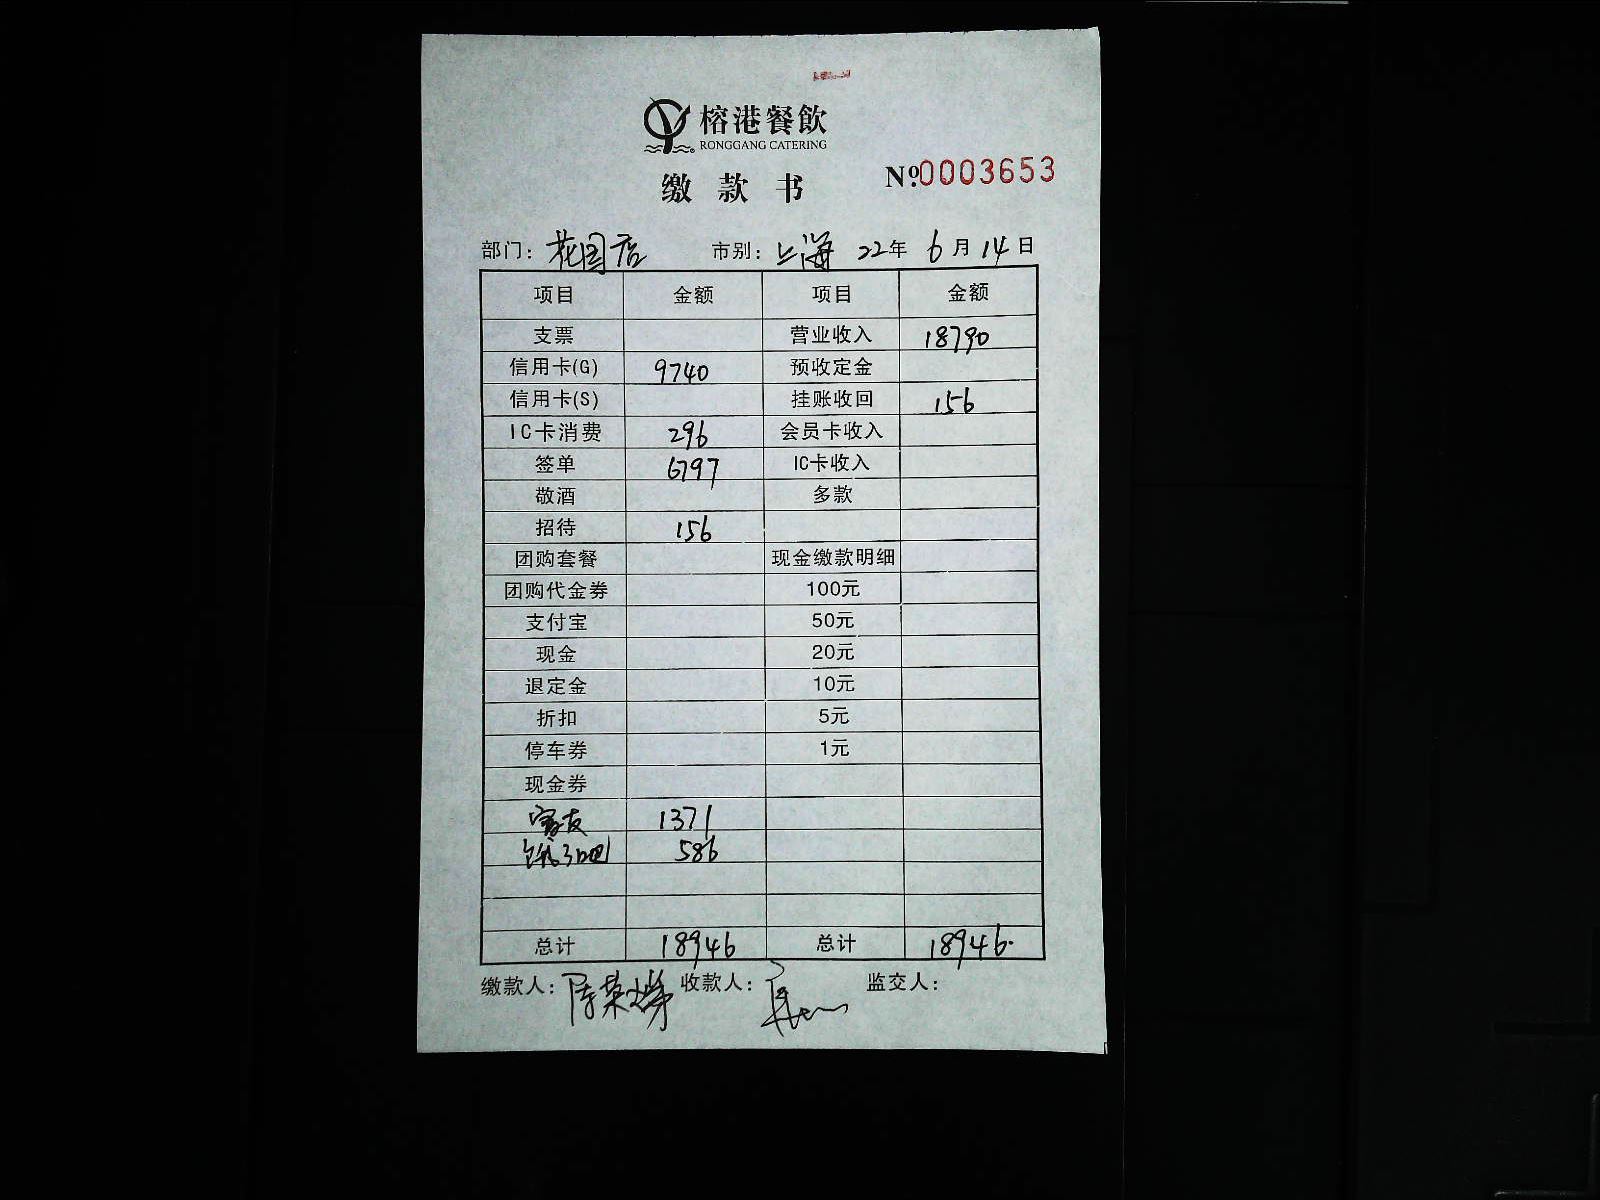 榕港餐飲
RONGGANG CATERING
缴款书 №0003653
部门：花园店 市别：上海 22年6月14日
项目 金额 项目 金额
支票 营业收入 18790
信用卡(G) 9740 预收定金
信用卡(S) 挂账收回 156
IC卡消费 296 会员卡收入
签单 6797 IC卡收入
敬酒 多款
招待 156
团购套餐 现金缴款明细
团购代金券 100元
支付宝 50元
现金 20元
退定金 10元
折扣 5元
停车券 1元
现金券
1371
586
总计 18946 总计 18946
缴款人： 收款人： 监交人：